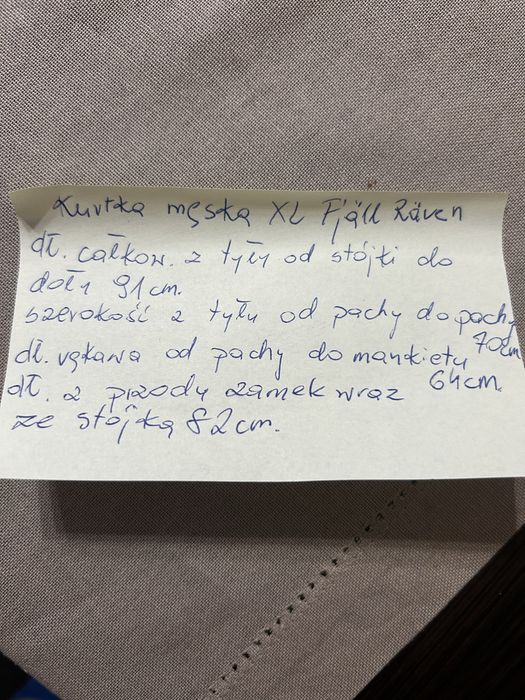 Kurtka męska XL Fjäll Räven
dł. całkow. z tyłu od stójki do
dołu 91cm.
szerokość z tyłu od pachy do pachy
70cm
dł. rękawa od pachy do mankietu
64cm.
dł. z przodu zamek wraz
ze stójką 82cm.